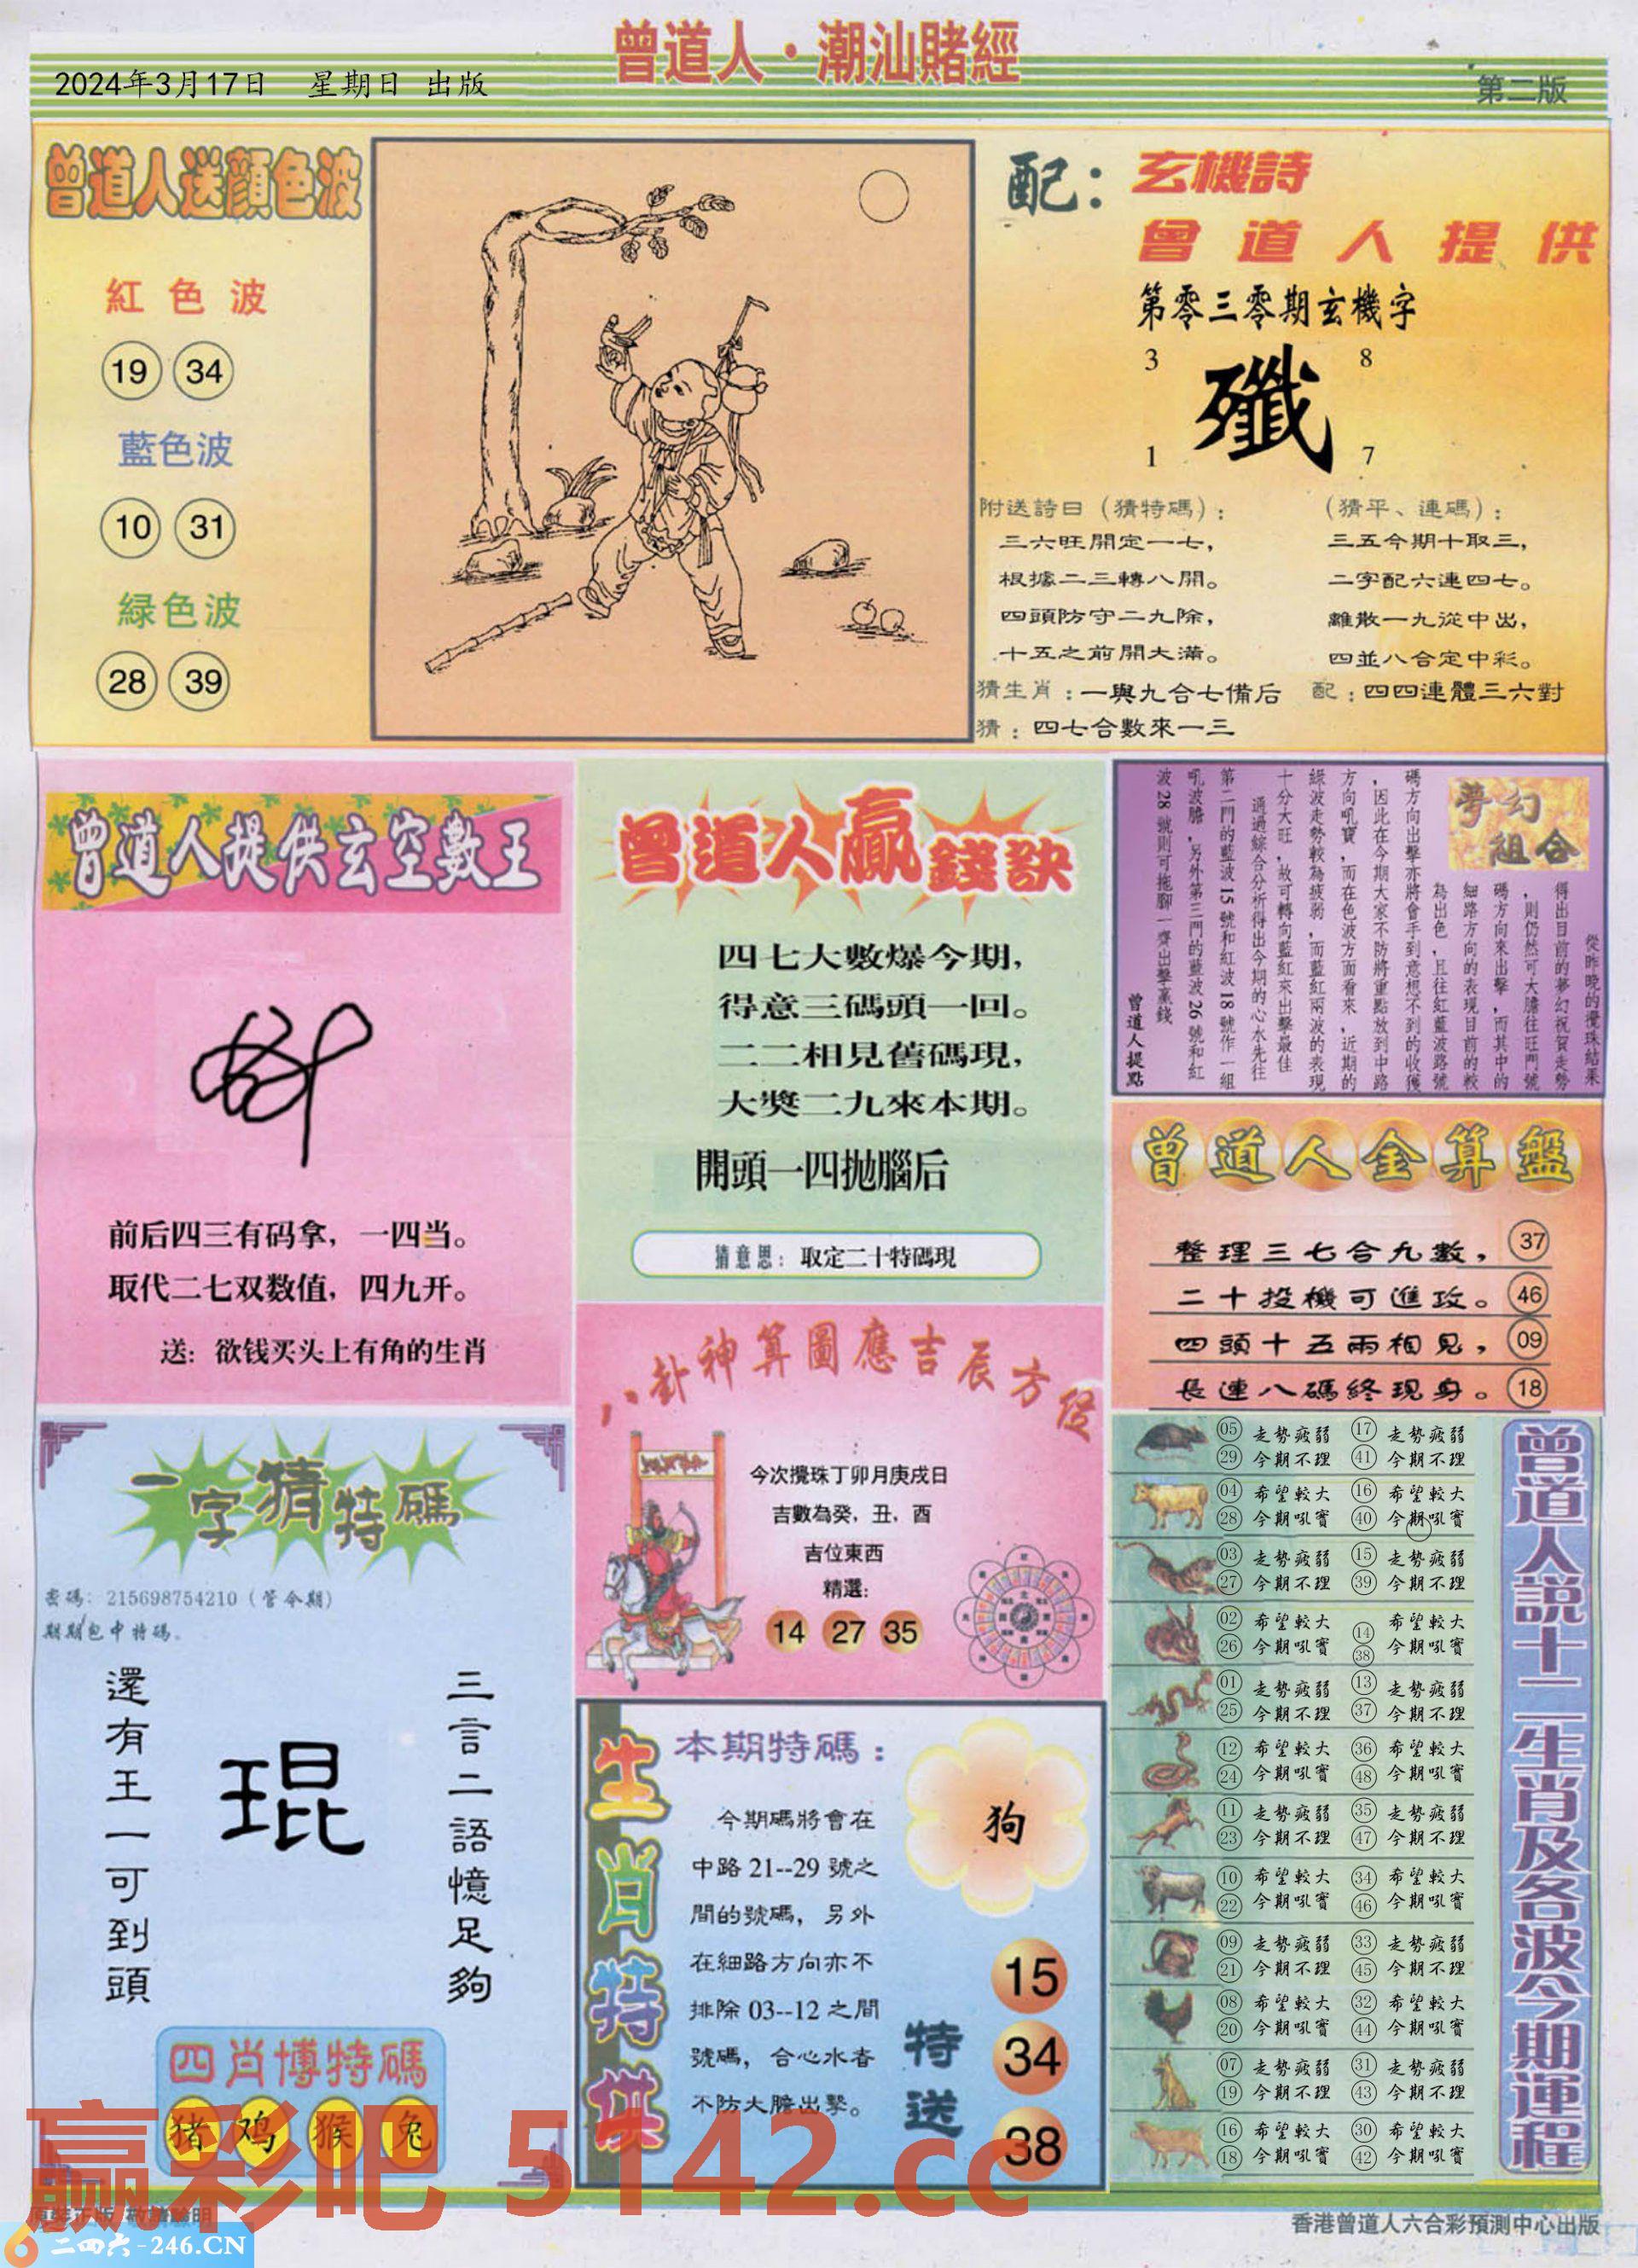 曾道人·潮汕賭經
2024年3月17日 星期日 出版
第二版
曾道人送顏色波
紅色波
19 34
藍色波
10 31
緑色波
28 39
配：
玄機詩
曾道人提供
第零三零期玄機字
3 8
殲
1 7
附送詩日（猜特碼）：
三六旺開定一七，
根據二三轉八開。
四頭防守二九除，
十五之前開大滿。
（猜平、連碼）：
三五今期十取三，
二字配六連四七。
離散一九從中出，
四並八合定中彩。
猜生肖：一與九合七備后
配：四四連體三六對
猜：四七合數來一三
曾道人提供玄空數王
前后四三有码拿，一四当。
取代二七双数值，四九开。
送：欲钱买头上有角的生肖
曾道人贏錢訣
四七大數爆今期，
得意三碼頭一回。
二二相見舊碼現，
大獎二九來本期。
開頭一四拋腦后
猜意思：取定二十特碼現
夢幻
組合
從昨晚的攪珠結果
得出目前的夢幻祝賀走勢
，則仍然可大膽往旺門號
碼方向來出擊，而其中的
細路方向的表現目前的較
為出色，且往紅藍波路號
碼方向出擊亦將會手到意想不到的收獲
，因此在今期大家不防將重點放到中路
方向吼寶，而在色波方面看來，近期的
綠波走勢較為疲弱，而藍紅兩波的表現
十分大旺，故可轉向藍紅來出擊最佳
通過綜合分析得出今期的心水先往
第二門的藍波15號和紅波18號作一組
吼波膽，另外第三門的藍波26號和紅
波28號則可拖腳一齊出擊贏錢
曾道人提點
曾道人金算盤
整理三七合九數，37
二十投機可進攻。46
四頭十五兩相見，09
長連八碼終現身。18
八卦神算圖應吉辰方位
今次攪珠丁卯月庚戌日
吉數為癸，丑，酉
吉位東西
精選：
14 27 35
一字猜特碼
密碼：215698754210（管今期）
期期包中特碼。
還有王一可到頭
琨
三言二語憶足夠
四肖博特碼
猪 鸡 猴 兔
生肖特供
本期特碼：
今期碼將會在
中路21--29號之
間的號碼，另外
在細路方向亦不
排除03--12之間
號碼，合心水者
不防大膽出擊。
狗
特送
15
34
38
曾道人說十二生肖及各波今期運程
05 走勢疲弱 17 走勢疲弱
29 今期不理 41 今期不理
04 希望較大 16 希望較大
28 今期吼實 40 今期吼實
03 走勢疲弱 15 走勢疲弱
27 今期不理 39 今期不理
02 希望較大 14 希望較大
26 今期吼實 38 今期吼實
01 走勢疲弱 13 走勢疲弱
25 今期不理 37 今期不理
12 希望較大 36 希望較大
24 今期吼實 48 今期吼實
11 走勢疲弱 35 走勢疲弱
23 今期不理 47 今期不理
10 希望較大 34 希望較大
22 今期吼實 46 今期吼實
09 走勢疲弱 33 走勢疲弱
21 今期不理 45 今期不理
08 希望較大 32 希望較大
20 今期吼實 44 今期吼實
07 走勢疲弱 31 走勢疲弱
19 今期不理 43 今期不理
16 希望較大 30 希望較大
18 今期吼實 42 今期吼實
赢彩吧 5142.cc
原裝正版 敬請驗明
二四六-246.CN
香港曾道人六合彩預測中心出版